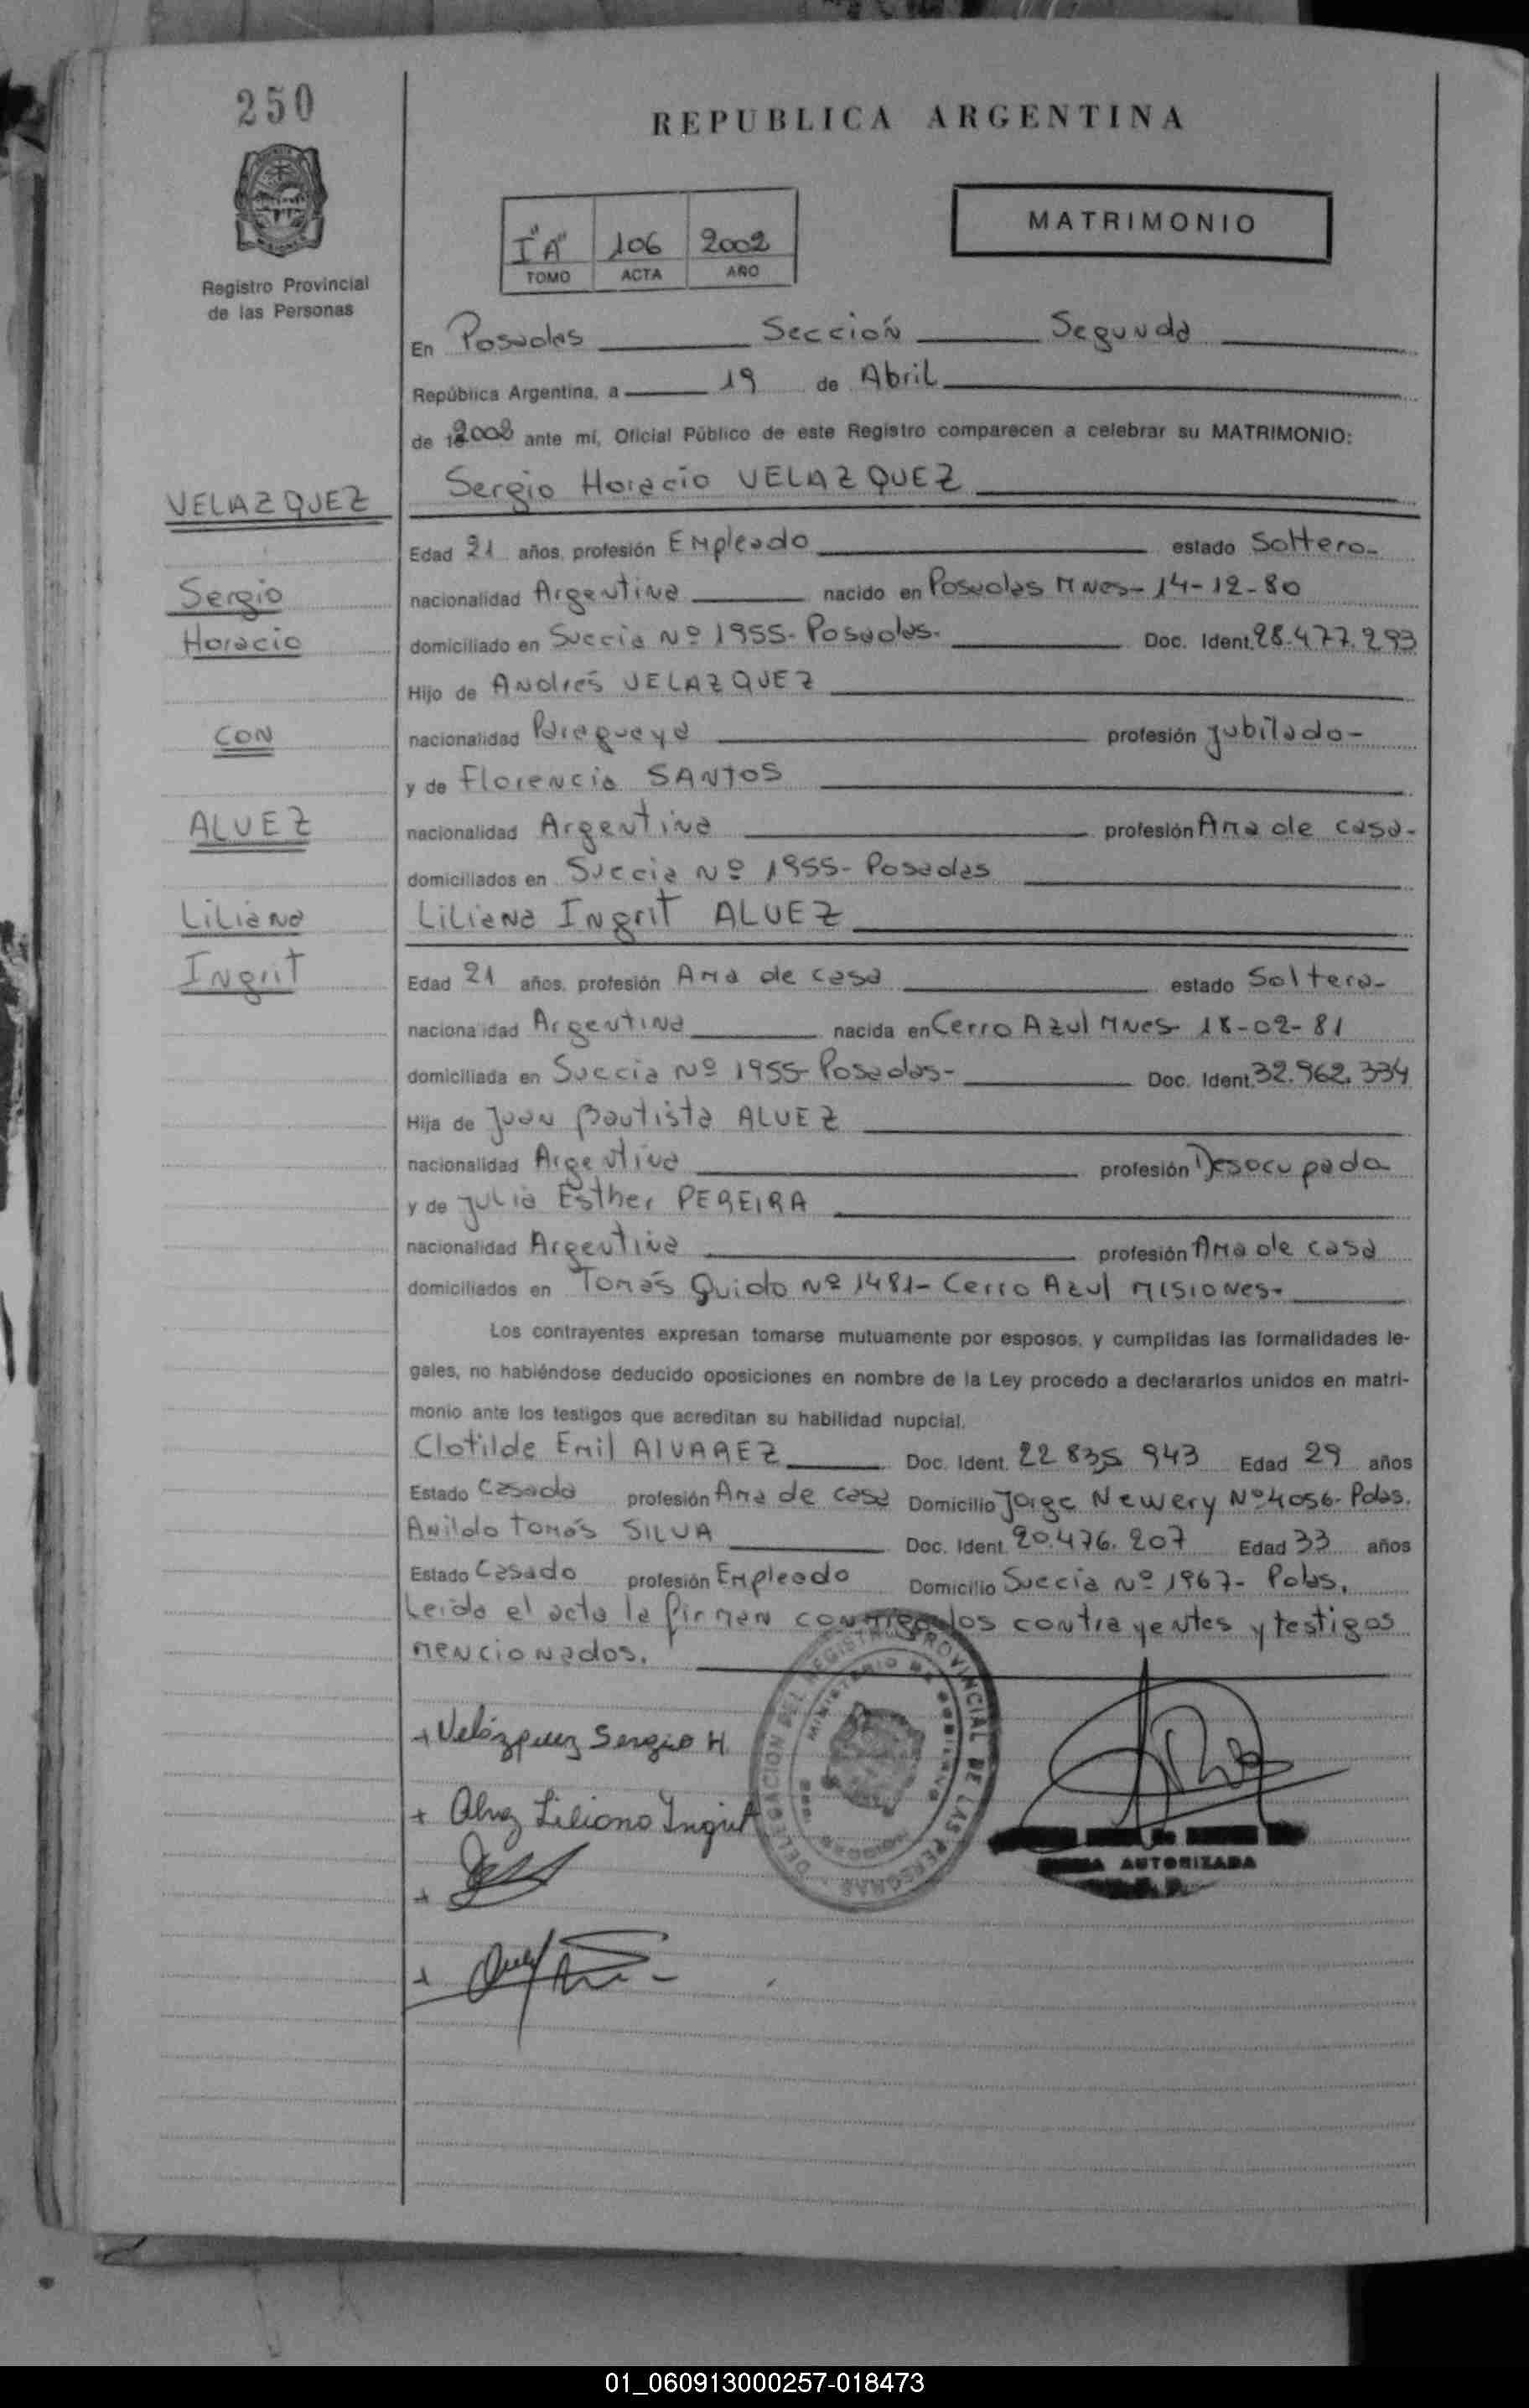 250
REPUBLICA ARGENTINA
MATRIMONIO
I "A" 106 2002
TOMO ACTA AÑO
Registro Provincial
de las Personas
En Posadas Sección Segunda
República Argentina, a 19 de Abril
de 2002 ante mí, Oficial Público de este Registro comparecen a celebrar su MATRIMONIO:
VELAZQUEZ
Sergio
Horacio
CON
ALVEZ
Liliana
Ingrit
Sergio Horacio VELAZQUEZ
Edad 21 años, profesión Empleado estado Soltero-
nacionalidad Argentina nacido en Posadas Mnes- 14-12-80
domiciliado en Suecia Nº 1955- Posadas- Doc. Ident. 28.477.293
Hijo de Andrés VELAZQUEZ
nacionalidad Paraguaya profesión Jubilado-
y de Florencia SANTOS
nacionalidad Argentina profesión Ama de casa-
domiciliados en Suecia Nº 1955- Posadas
Liliana Ingrit ALVEZ
Edad 21 años, profesión Ama de casa estado Soltera-
nacionalidad Argentina nacida en Cerro Azul Mnes- 18-02-81
domiciliada en Suecia Nº 1955- Posadas- Doc. Ident. 32.962.334
Hija de Juan Bautista ALVEZ
nacionalidad Argentina profesión Desocupada
y de Julia Esther PEREIRA
nacionalidad Argentina profesión Ama de casa
domiciliados en Tomás Guido Nº 1481- Cerro Azul Misiones-
Los contrayentes expresan tomarse mutuamente por esposos, y cumplidas las formalidades le-
gales, no habiéndose deducido oposiciones en nombre de la Ley procedo a declararlos unidos en matri-
monio ante los testigos que acreditan su habilidad nupcial.
Clotilde Emil ALVAREZ Doc. Ident. 22 835 943 Edad 29 años
Estado Casada profesión Ama de casa Domicilio Jorge Newery Nº 4056- Pdas.
Anildo Tomás SILVA Doc. Ident. 20.476.207 Edad 33 años
Estado Casado profesión Empleado Domicilio Suecia Nº 1967- Pdas.
Leida el acta la firman conmigo los contrayentes y testigos
mencionados.
DELEGACION DEL REGISTRO PROVINCIAL DE LAS PERSONAS
MINISTERIO DE GOBIERNO
+ Velázquez Sergio H
+ Alvez Liliana Ingrit
+
+
AUTORIZADA
01_060913000257-018473